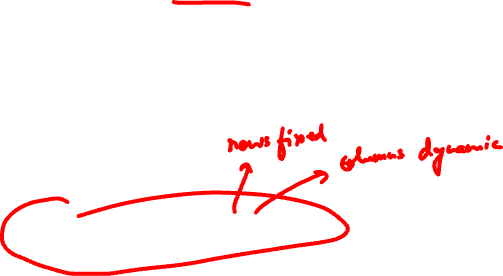 rows fixed
columns dynamic